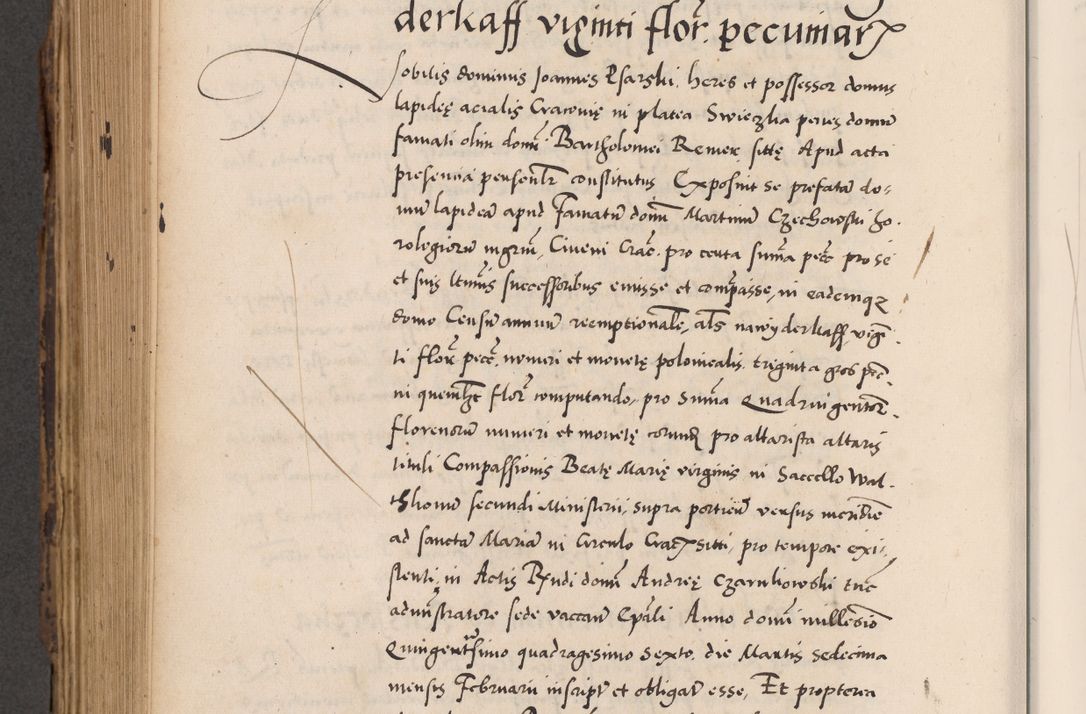 derkaff viginti flor. pecuniar
Nobilis dominus Joannes Psarski, heres et possessor domus
lapideę acialis Cracovię in platea Swieczka penes domum
famati olim domi Bartholomei Remer sittę Apud acta
presencia personlr constitutus Exposuit se prefatā do-
mum lapideā apud Famatū dom Martinū Czechowski ho-
rologiorū mgrm, Civem Crac. pro certa suma pecc pro se
et suis ltimis successoribus emisse et comparasse, in eademq3
domo Censum annuum reemptionale, als nawyderkaff, vigē
ti flor pecc. numeri et monetę polonicalis, triginta gros pec.
in quemlibet flor computando, pro Suma Quadringentor
florenorū numeri et monetę eorund pro altarista altaris
tituli Compassionis Beatę Marię virginis in Saccello Wal-
thkonū secundi Ministerii, supra porticū versus meridiē
ad sanctā Mariā in Circulo Crac sitti, pro tempore exi-
stenti, in Actis Rndi domi Andreę Czarnkowski tūc
admstratore sede vaccan Epali Anno domi millesio
Quingentesimo quadragesimo sexto, die Martis sedecima
mensis Februarii inscript et obligat esse, Et propterea